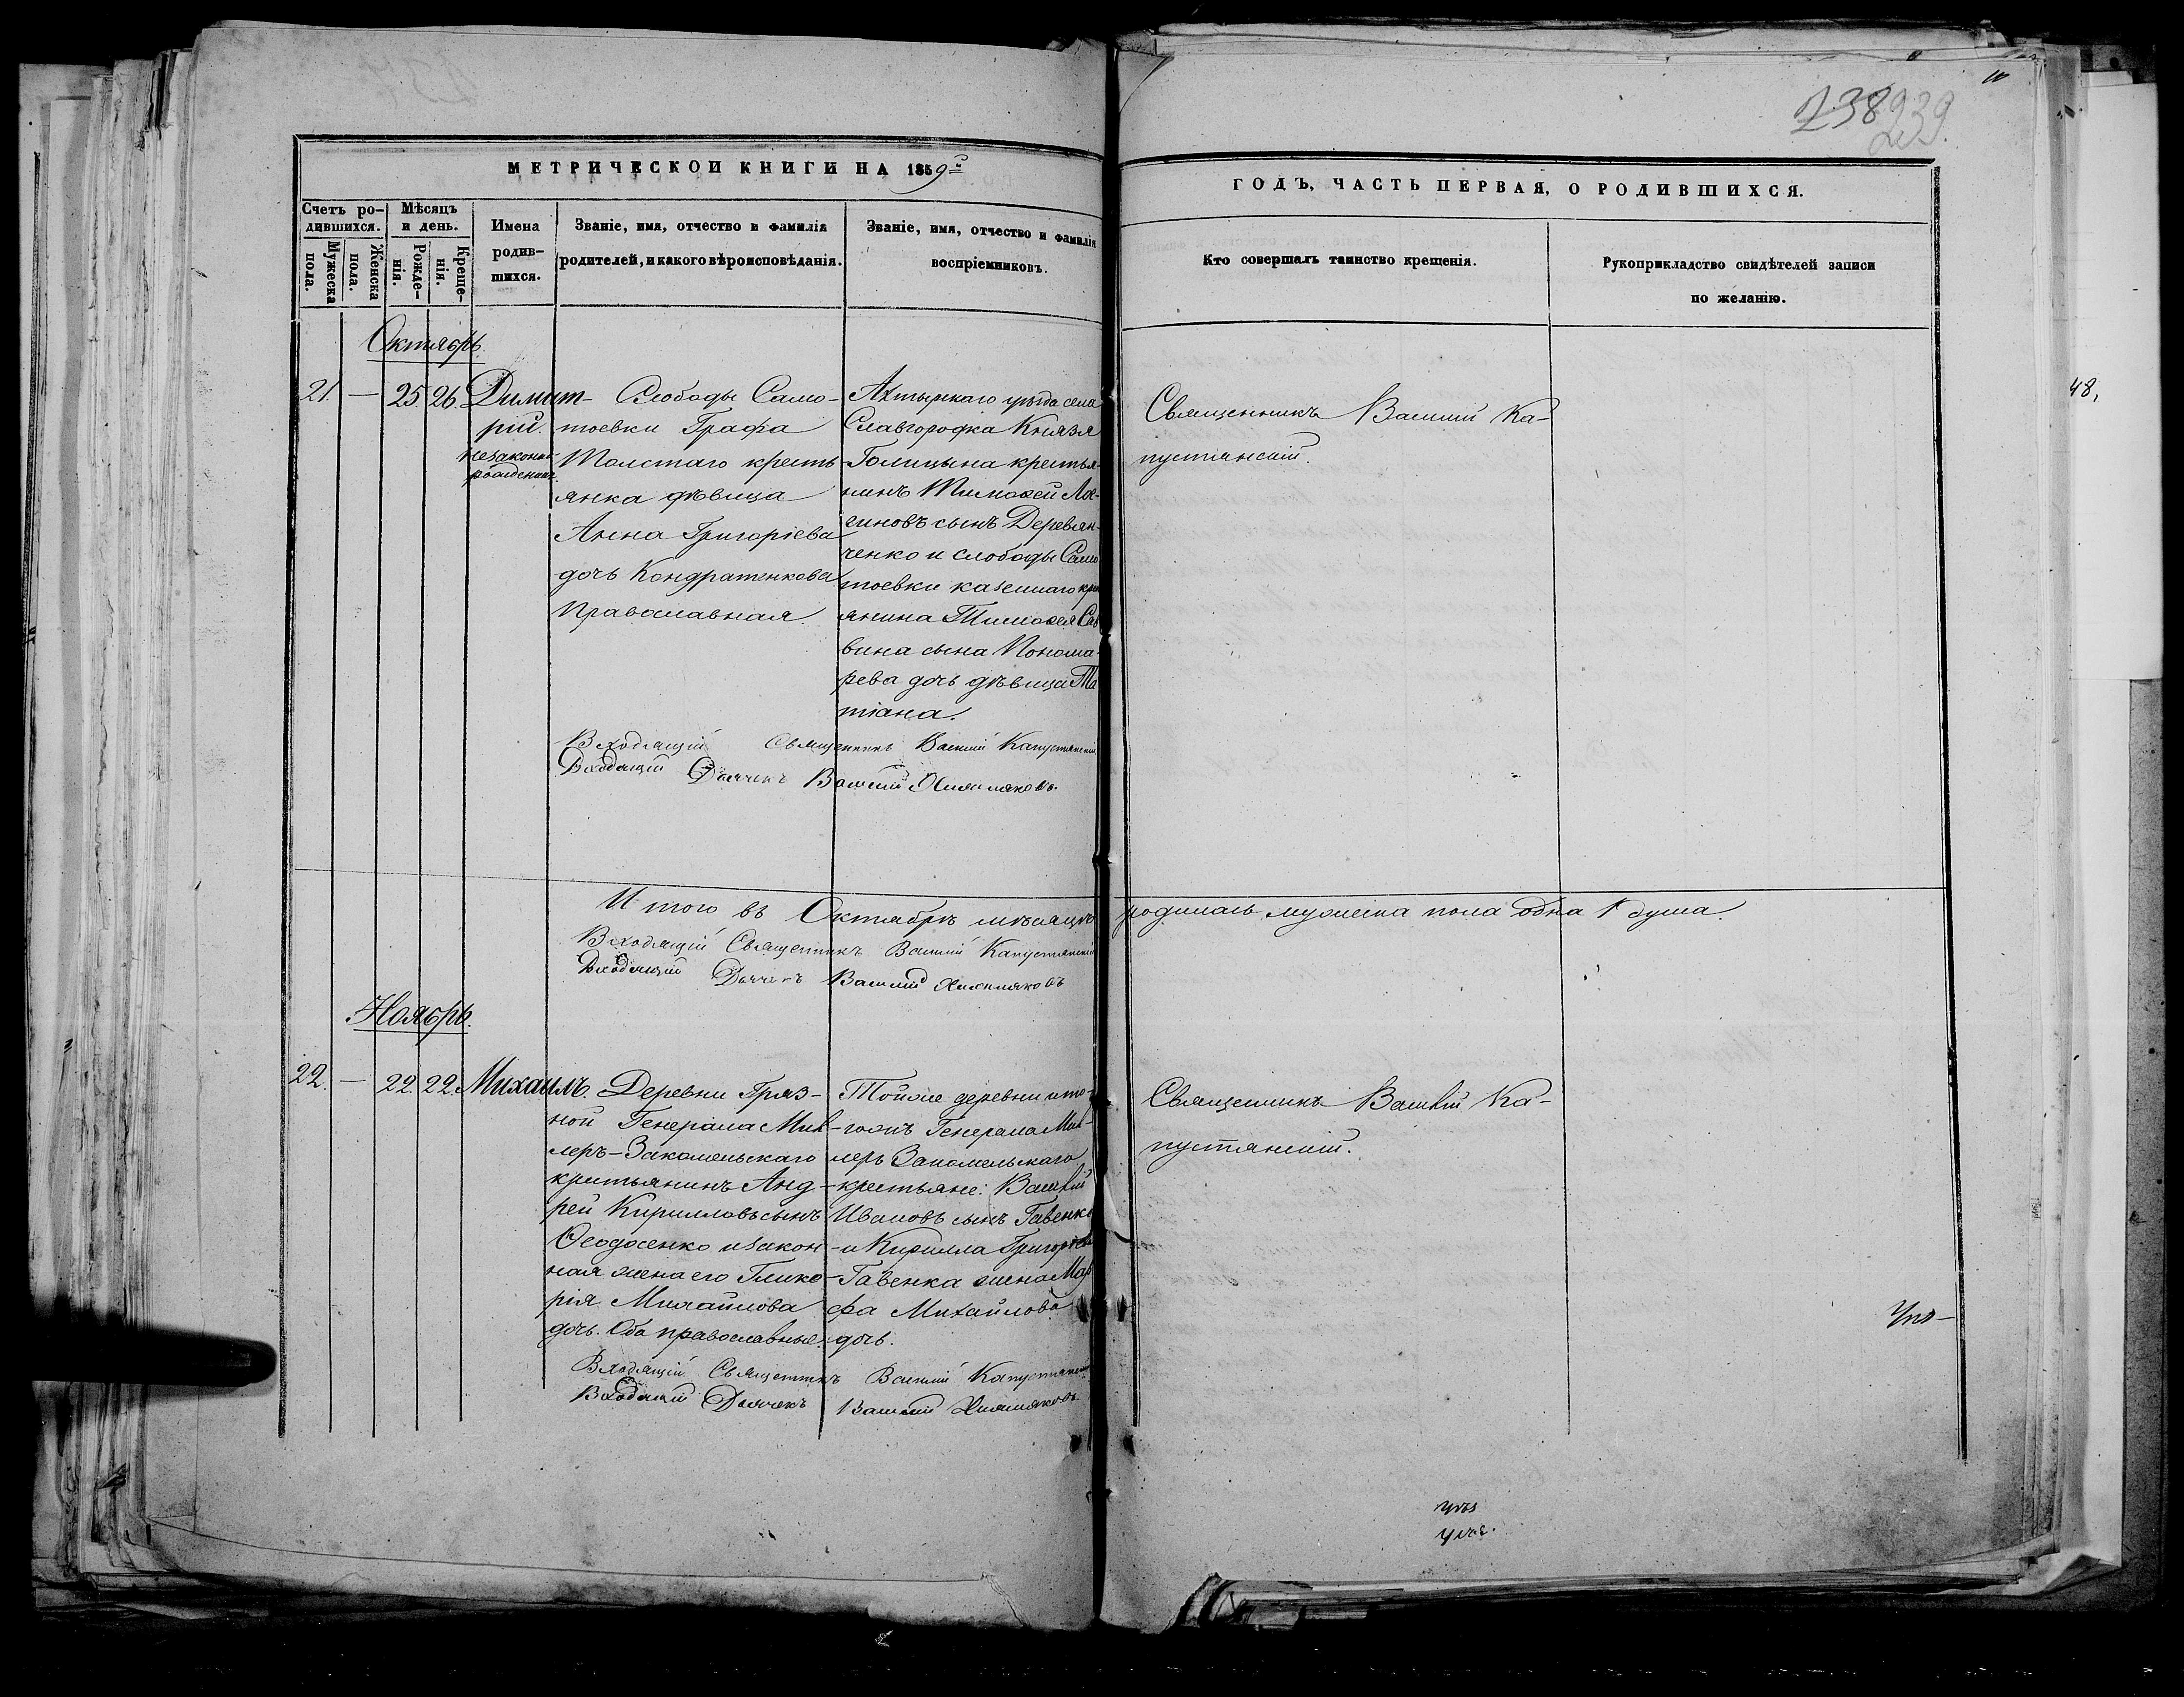 238 239
10
МЕТРИЧЕСКОЙ КНИГИ НА 1859й
ГОДЪ, ЧАСТЬ ПЕРВАЯ, О РОДИВШИХСЯ.
Счетъ ро-
дившихся.
Мужеска
пола.
Женска
пола.
Мѣсяцъ
и день.
Рожде-
нія.
Креще-
нія.
Имена
родив-
шихся.
Званіе, имя, отчество и фамилія
родителей, и какого вѣроисповѣданія.
Званіе, имя, отчество и фамилія
воспріемниковъ.
Кто совершалъ таинство крещенія.
Рукоприкладство свидѣтелей записи
по желанію.
Октябрь.
21. — 25. 26.
Димит-
рій.
незаконно
рожденный
Слободы Само-
тоевки Графа
Толстаго кресть-
янка дѣвица
Анна Григоріева
дочь Кондратенкова
Православная
Ахтырскаго уѣзда села
Славгородка Князя
Голицына крестья-
нинъ Тимоѳей Лог-
гиновъ сынъ Деревян-
ченко и слободы Само
тоевки казеннаго крес
янина Тимоѳея Сав
вина сына Понома-
рева дочь дѣвица Та
тіана.
Священникъ Василій Ка-
пустянскій.
Входящій Священникъ Василій Капустянскій
Входящій Дьячекъ Василій
Итого въ Октябрѣ мѣсяцѣ родилась мужеска пола одна 1 душа.
Входящій Священникъ Василій Капустянскій
Входящій Дьячекъ Василій
Ноябрь.
22. — 22. 22.
Михаилъ.
Деревни Гряз-
ной Генерала Мил-
леръ-Закомельскаго
крестьянинъ Анд-
рей Кирилловъ сынъ
Ѳеодосенко и закон-
ная жена его Глике-
рія Михаилова
дочь. Оба православные.
Тойже деревни и то-
гожъ Генерала Мил-
леръ Закомельскаго
крестьяне: Василій
Ивановъ сынъ Гавенко
и Кирилла Григорьева
Гавенка жена Мар
фа Михайлова
дочь.
Священникъ Василій Ка-
пустянскій.
Входящій Священникъ Василій Капустянскій
Входящій Дьячекъ Василій
48,